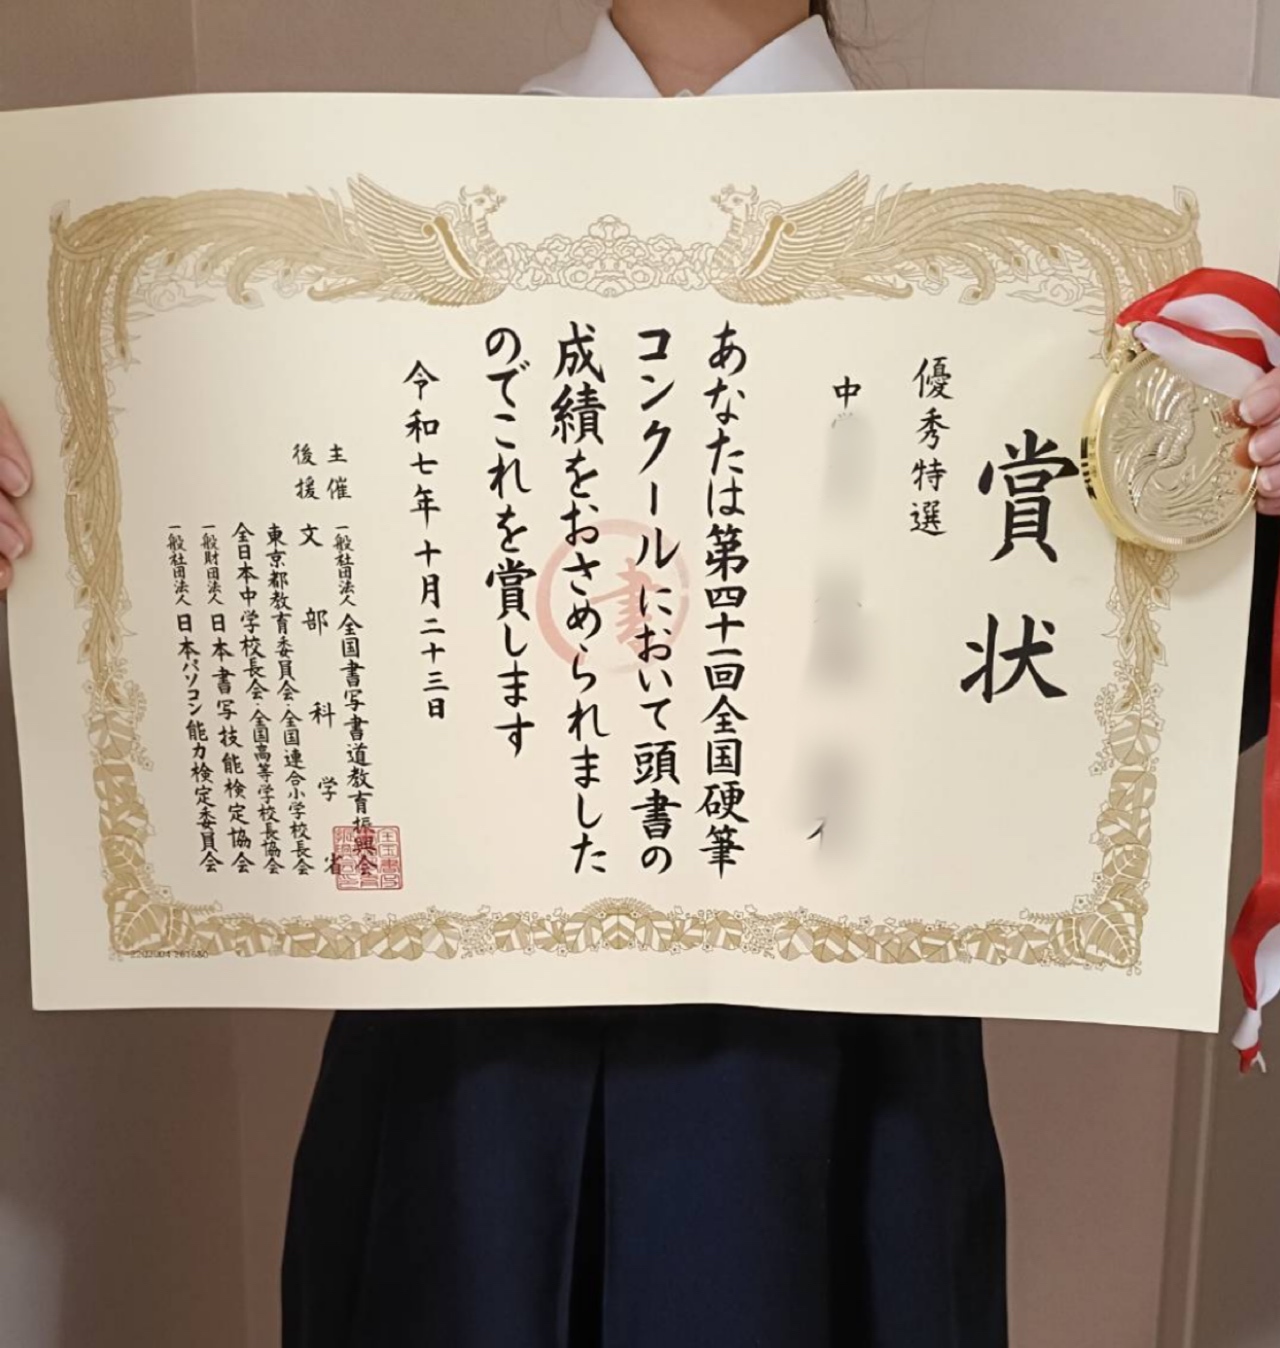 賞状
優秀特選
中
あなたは第四十一回全国硬筆
コンクールにおいて頭書の
成績をおさめられました
のでこれを賞します
令和七年十月二十三日
主催 一般社団法人 全国書写書道教育振興会
後援 文部科学省
東京都教育委員会・全国連合小学校長会
全日本中学校長会・全国高等学校長協会
一般財団法人 日本書写技能検定協会
一般社団法人 日本パソコン能力検定委員会
書